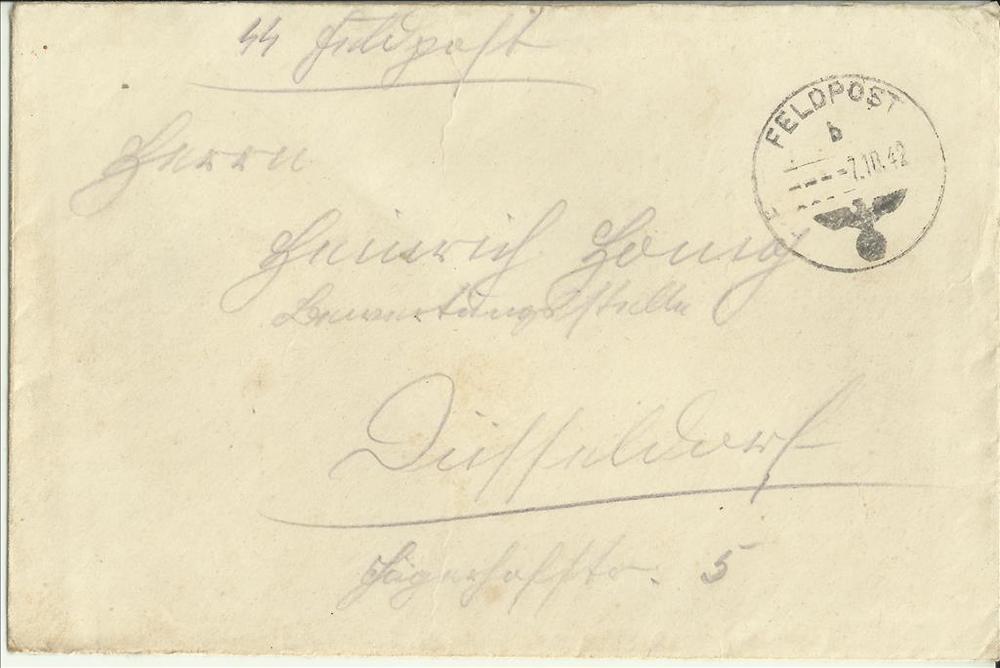 SS Feldpost
FELDPOST
b
-7.10.42
Herrn
Heinrich Honig
Bewertungsstelle
Düsseldorf
Jägerhofstr. 5